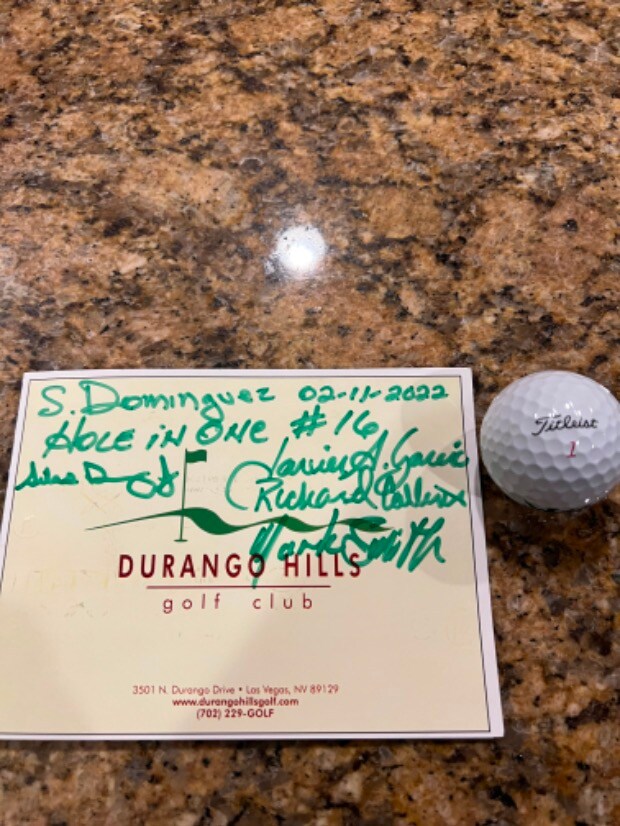 S. Dominguez 02-11-2022
HOLE iN ONE #16
Richard
Mark Smith
DURANGO HILLS
golf club
3501 N. Durango Drive • Las Vegas, NV 89129
www.durangohillsgolf.com
(702) 229-GOLF
Titleist
1